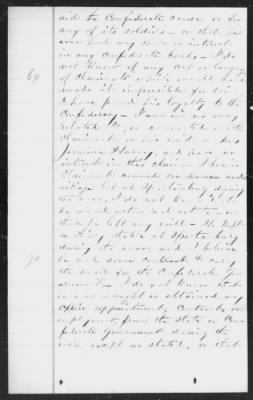 aid the Confederate cause or for
any of its soldiers - or that he
ever had any share or interest
in any Confederate bonds - I do
not know of any act or language
69 of claimants which would have
made it impossible for him
to have proved his loyalty to the
Confederacy - I am in no way
related to, or connected with
claimant, or his wid
Jemima and have no
interest in this claim. I believe
claimant owned one house and
village lot at Spartanburg during
the war, I do not know
he owned when and
that he left any will - He kept
a Livery stable at Spartanburg
during the war, and I believe
he had some contract to carry
70 the mail for the Confederate Gov
ernment - I do not know that
he ever sought or obtained any
office appointment, contract or
employment from the State or Con
federate Government during the
war except as stated, or that